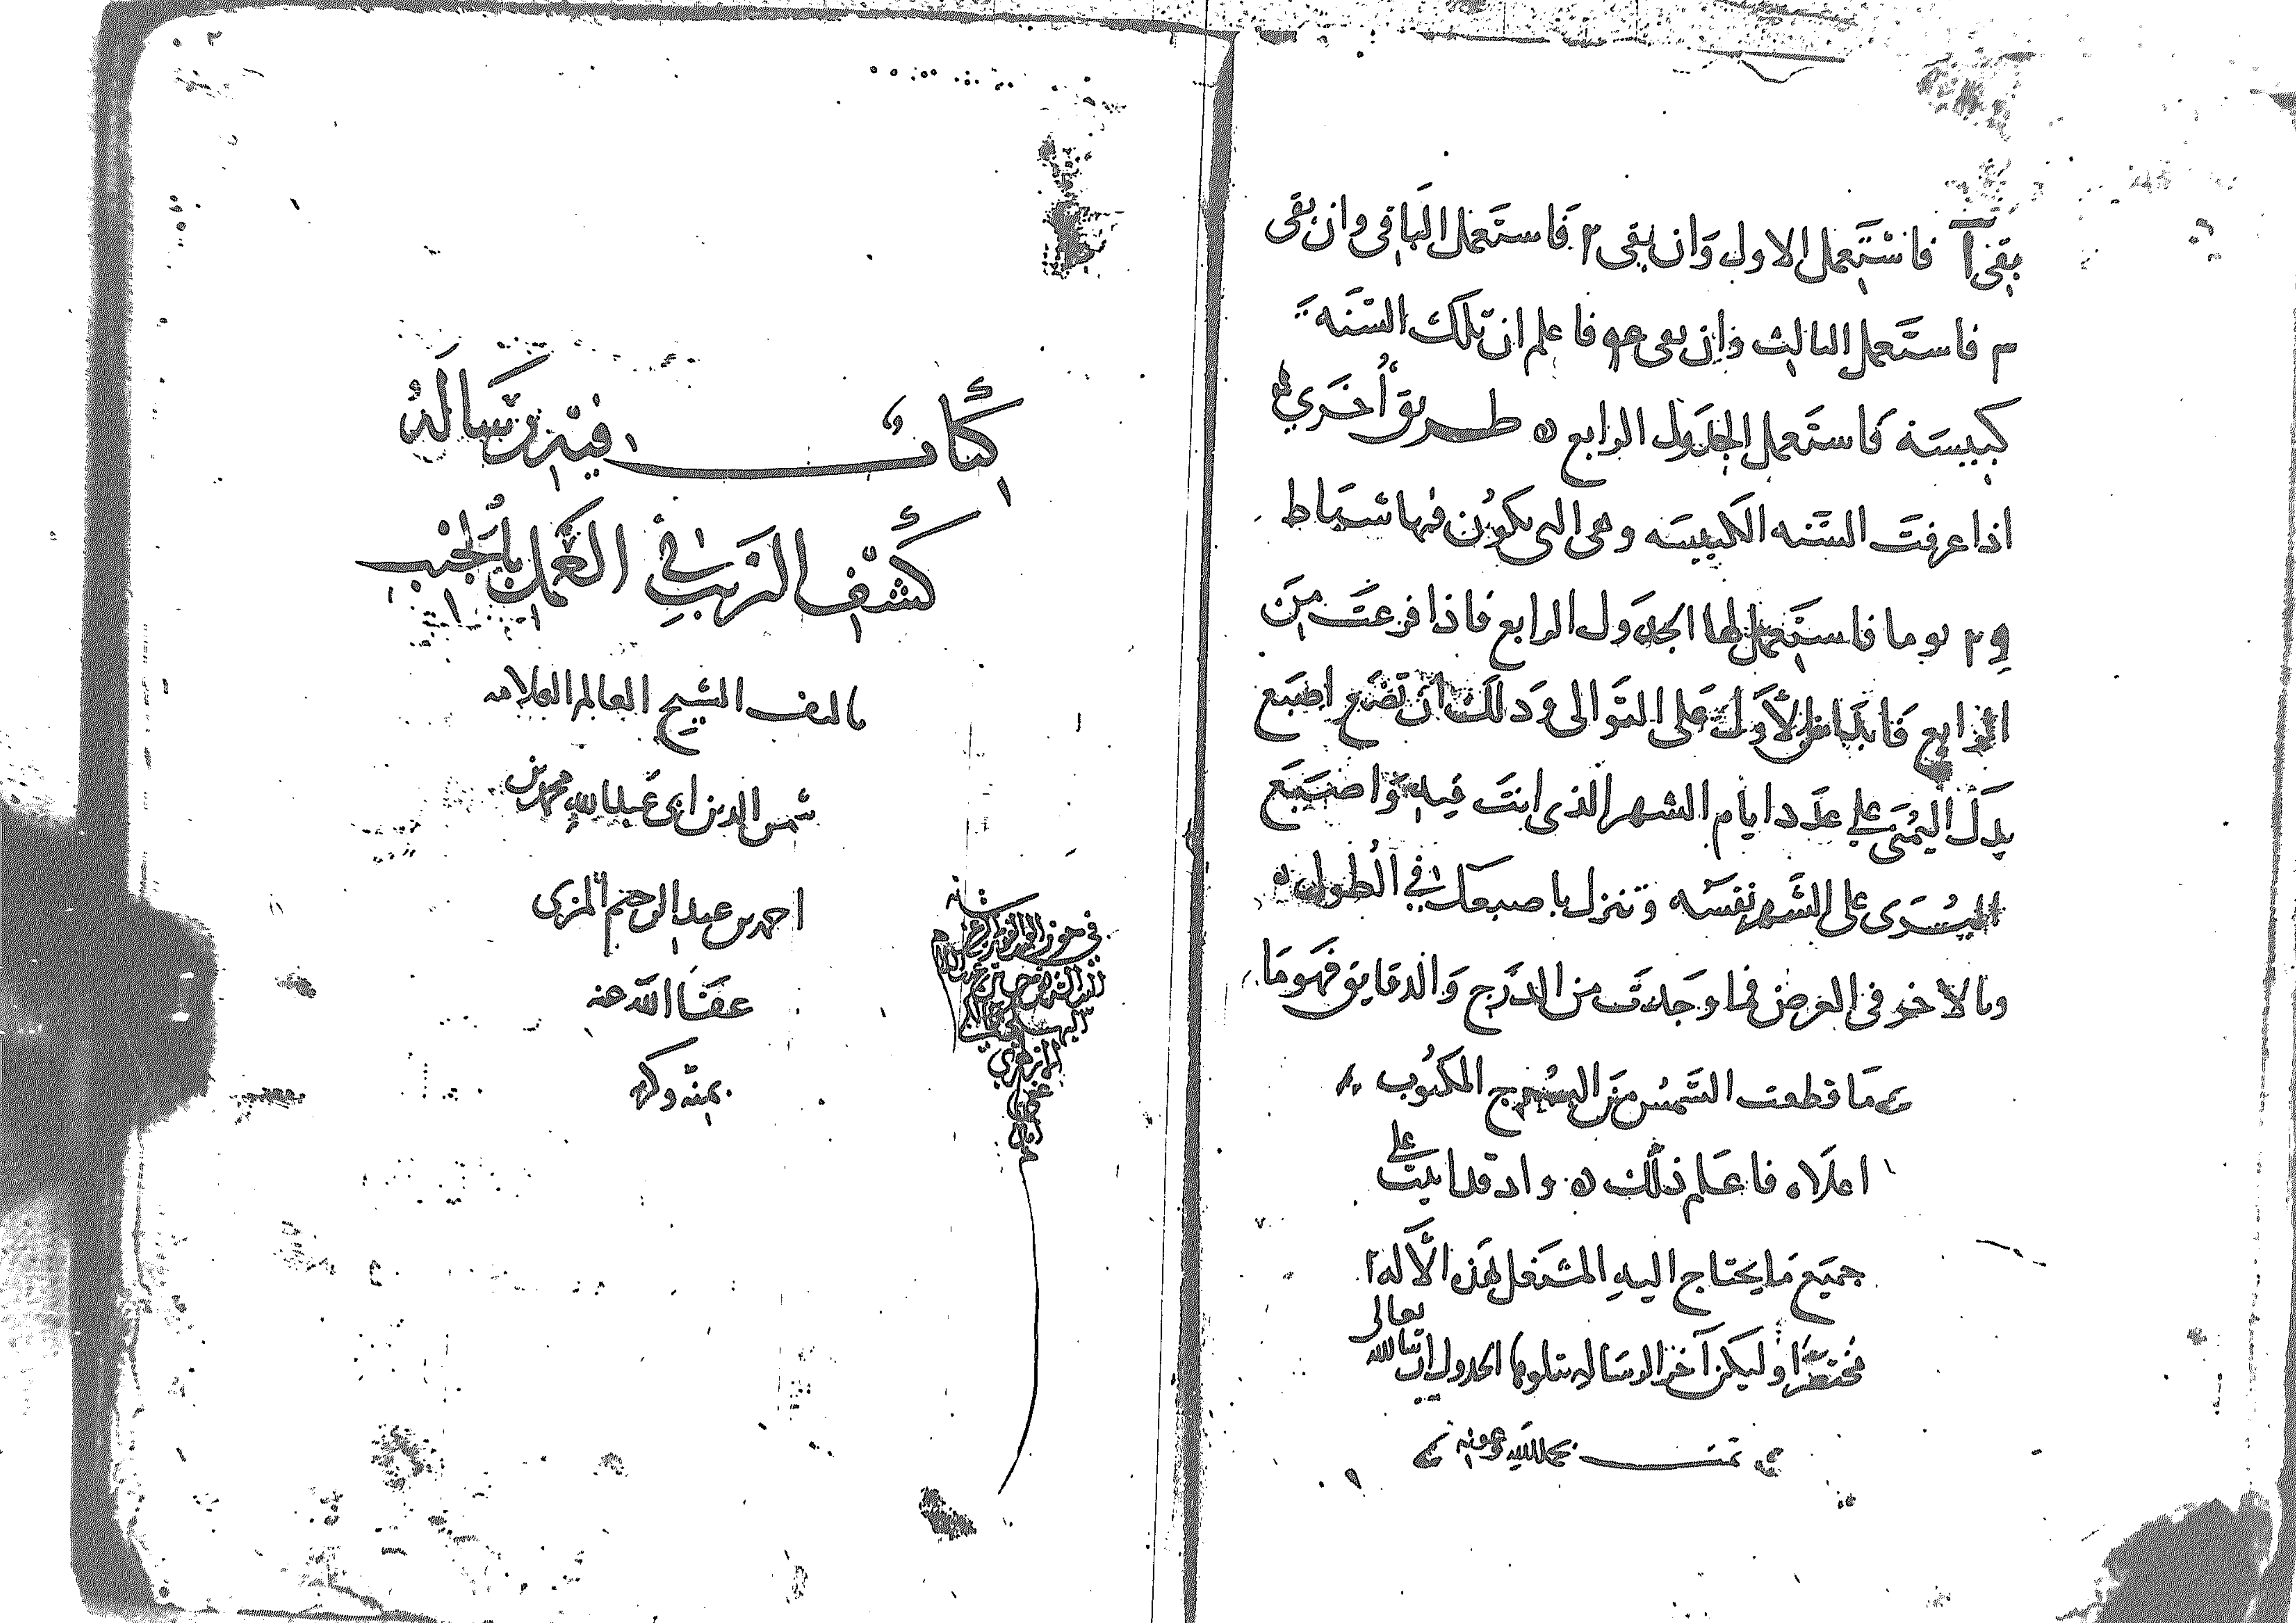 بقى ١ فاستعمل الاول وان بقى ٢ فاستعمل الباقي وان بقى
٣ فاستعمل الثالث وان بقى فاعلم ان تلك السنه
كبيسه فاستعمل الجدول الرابع ه طريق أخري
اذا عرفت السنه الكبيسه وهى التى يكون فيها شباط
يوما فاستعمل لها الجدول الرابع فاذا فرغت من
الرابع فابدا من الأول على التوالى وذلك ان تضع اصبع
يدك اليمنى على عدد ايام الشهر الذى انت فيه واصبع
اليسرى على الشهر نفسه وتنزل باصبعك في الطول
وبالاخر فى العرض فما وجدت من الدرج والدقايق فهو ما
ما قطعت الشمس من البرج المكتوب
اعلاه فاعلم ذلك ه واذ قد اتيت على
جميع ما يحتاج اليه المشتغل بهذه الآله
مختصرا وليكن آخر الرساله يتلوها الجدول ان شا الله تعالى
تمت بحمد الله وعونه
كتاب فيه رساله
كشف الريب في العمل بالجيب
تاليف الشيخ العالم العلامه
شمس الدين ابى عبد الله محمد بن
احمد بن عبد الرحيم المزى
عفا الله عنه
بمنه وكرمه
في حوز
الازهري